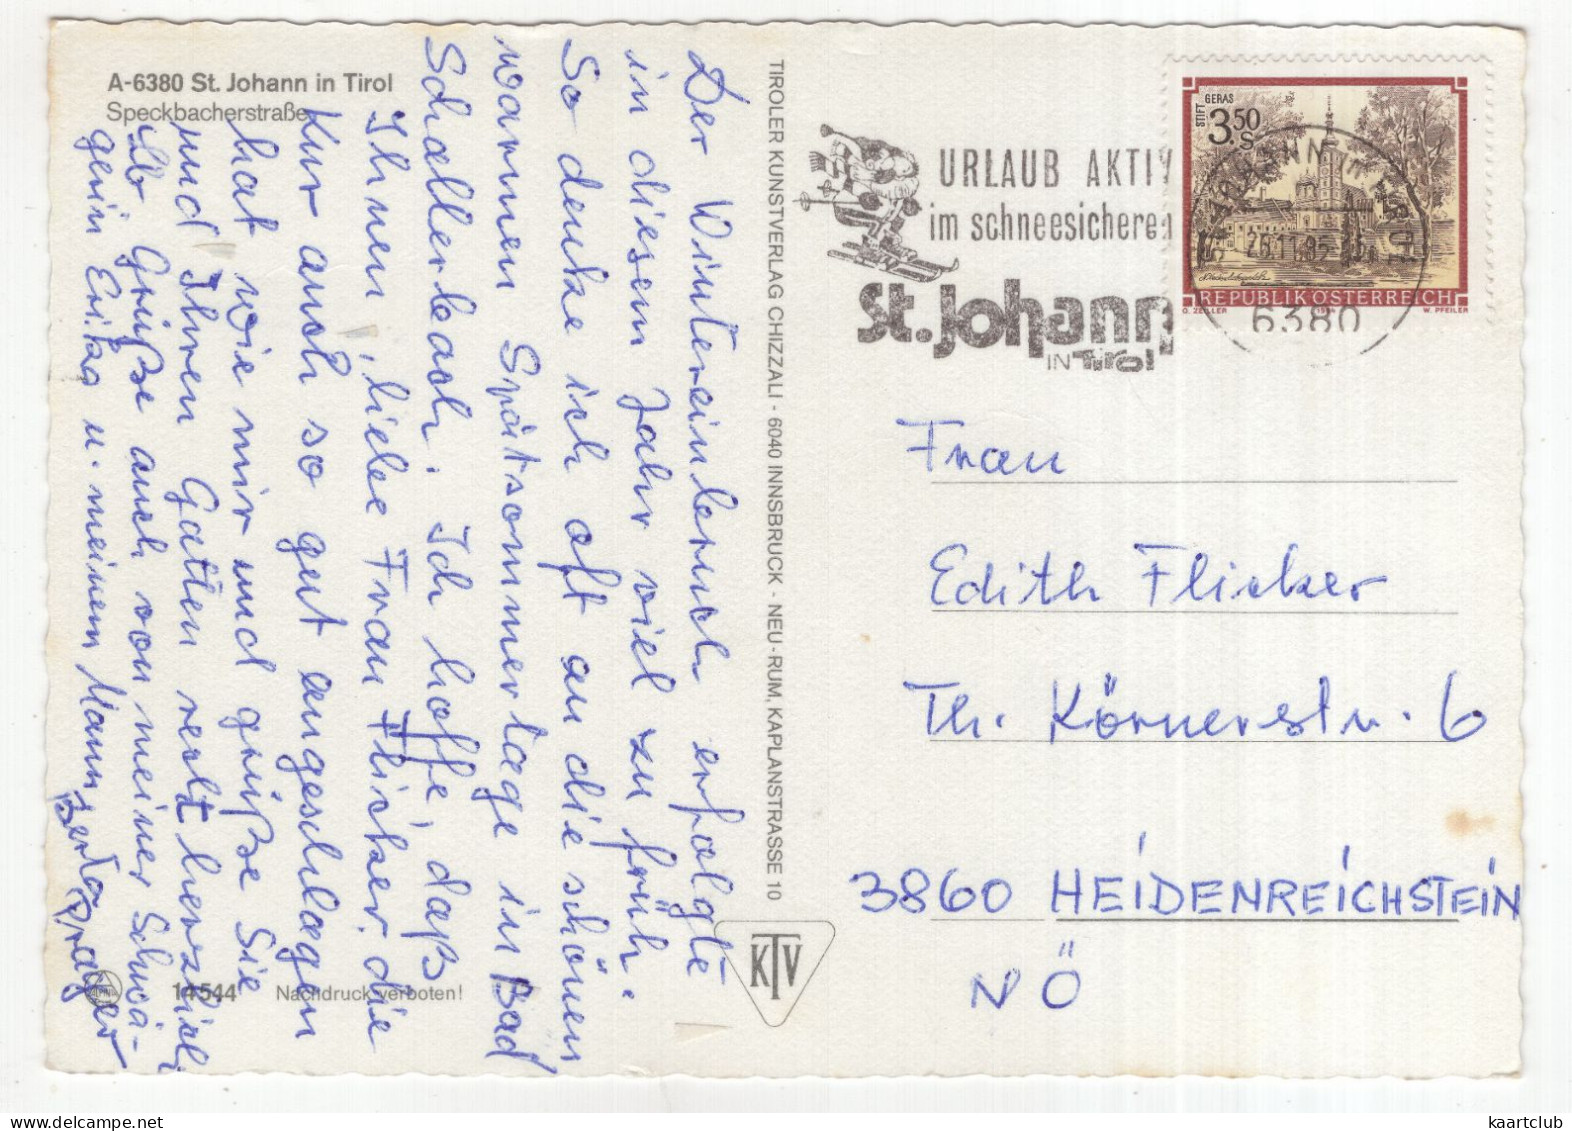 A-6380 St. Johann in Tirol
Speckbacherstraße
Der Wintereinbruch erfolgte
in diesem Jahr viel zu früh.
So denke ich oft an die schönen
warmen Spätsommertage in Bad
Schallerbach. Ich hoffe, daß
Ihnen, liebe Frau Flicker, die
Kur auch so gut angeschlagen
hat wie mir und grüße Sie
und Ihren Gatten recht herzlich.
Grüße auch von meiner Schwä-
gerin Erika u. meinem Mann,
Berta Prager
14544
Nachdruck verboten!
TIROLER KUNSTVERLAG CHIZZALI - 6040 INNSBRUCK - NEU-RUM, KAPLANSTRASSE 10
KTV
URLAUB AKTIV
im schneesicheren
St. Johann
IN Tirol
STIFT GERAS
3.50 S
REPUBLIK ÖSTERREICH
G. ZEILLER 1984 W. PFEILER
6380
Frau
Edith Flicker
Th. Körnerstr. 6
3860 HEIDENREICHSTEIN
NÖ
kaartclub